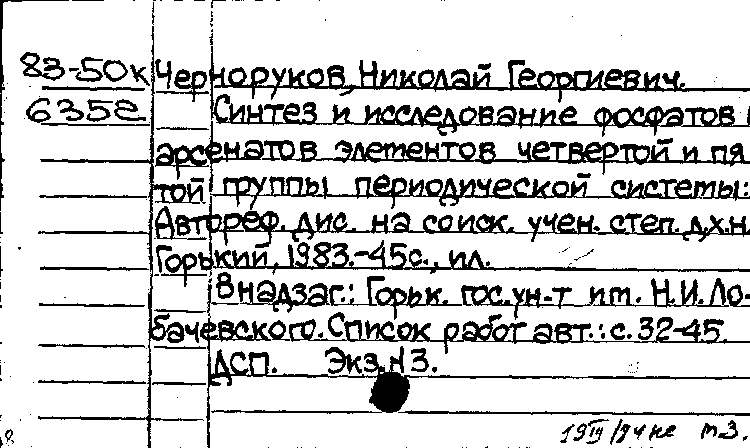 83-50к Черноруков, Николай Георгиевич.
6352 Синтез и исследование фосфатов и
арсенатов элементов четвертой и пя-
той группы периодической системы:
Автореф. дис. на соиск. учен. степ. д.х.н.
Горький, 1983.-45с., ил.
В надзаг.: Горьк. гос. ун-т им. Н.И. Ло-
бачевского. Список работ авт.: с. 32-45.
ДСП. Экз. N 3.
т.3.